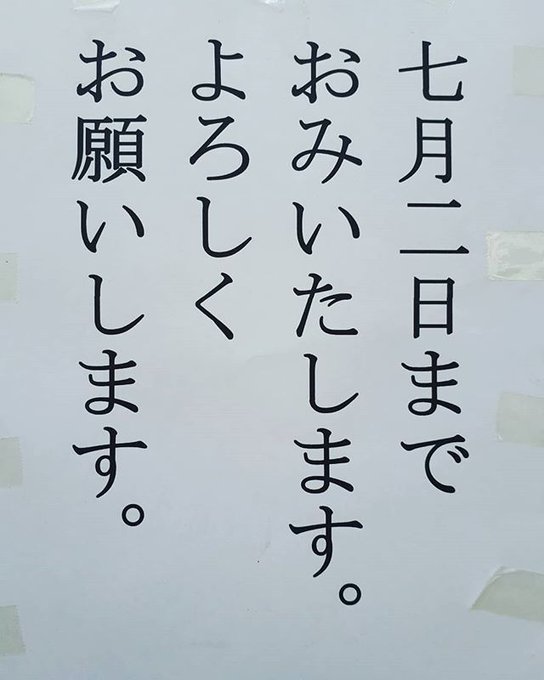 七月二日まで
おみいたします。
よろしく
お願いします。